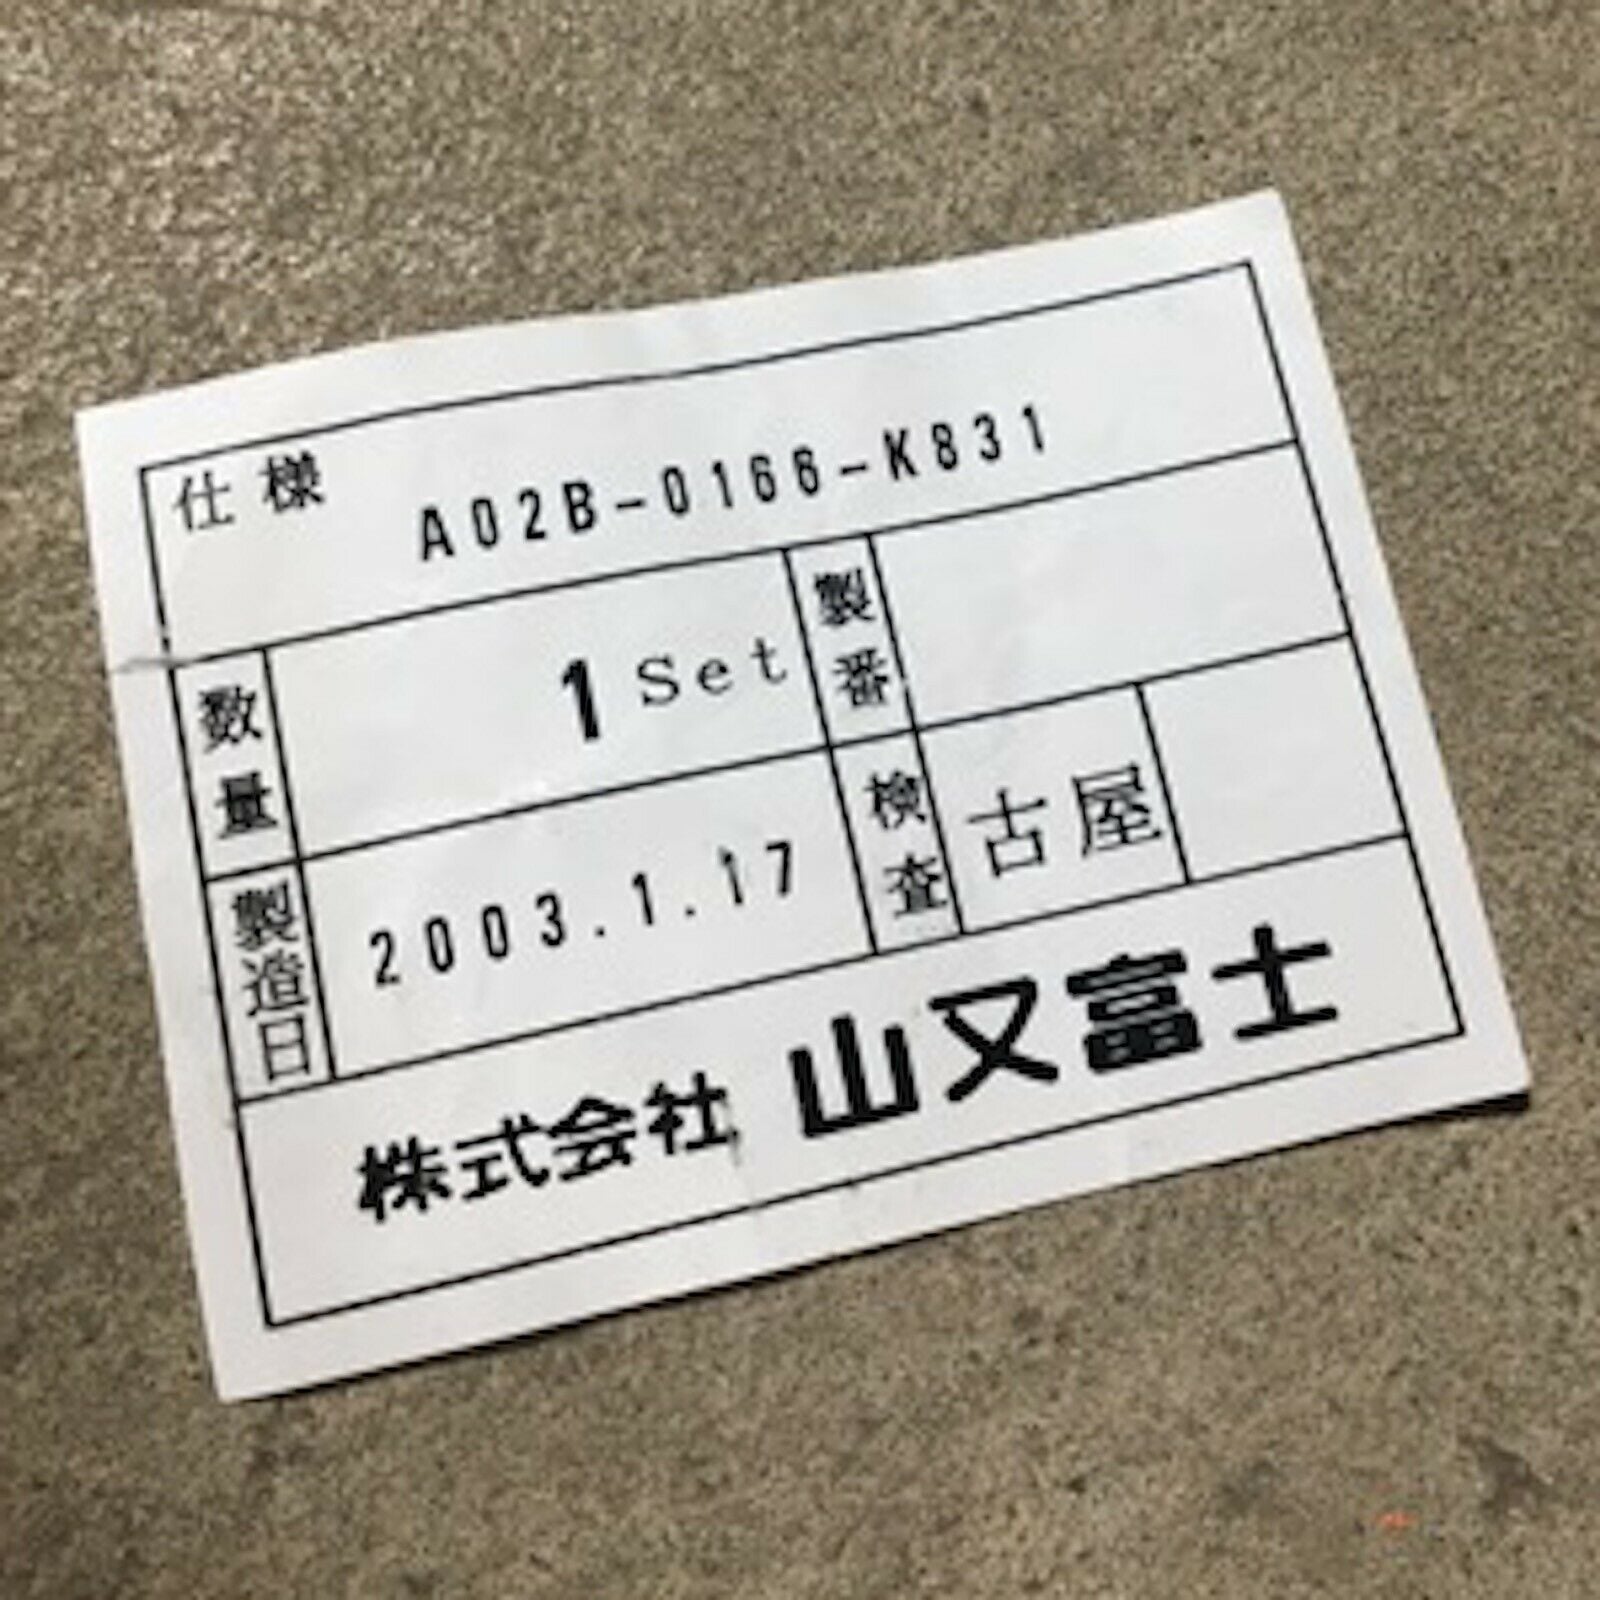 仕様 A02B-0166-K831
数量 1 Set 製番
製造日 2003.1.17 検査 古屋
株式会社 山又富士